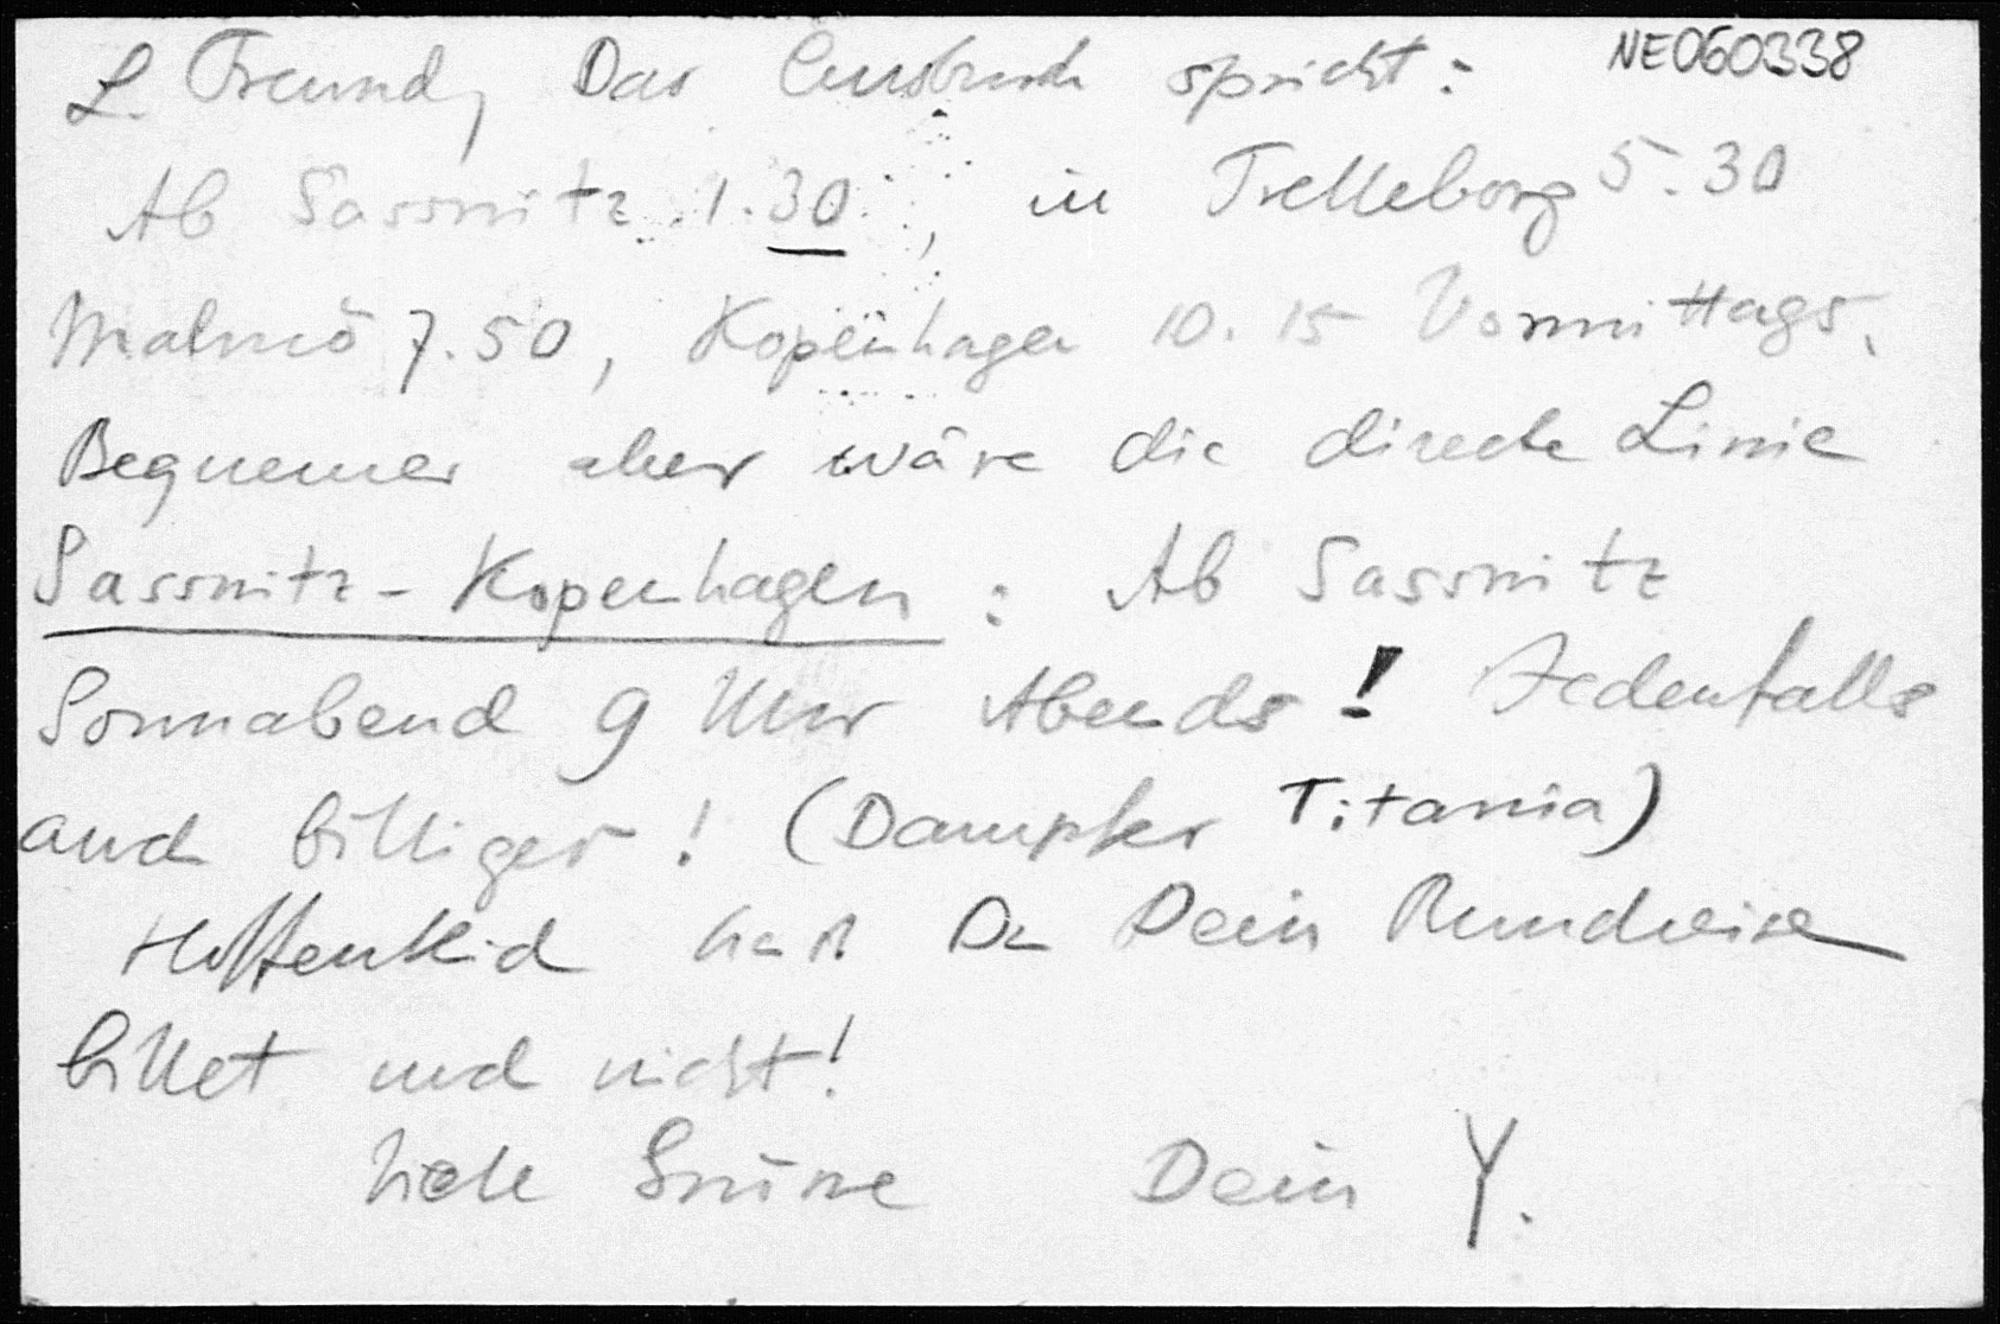 NE060338
L. Freund, Das Cursbuch spricht:
Ab Sassnitz 1.30, in Trelleborg 5.30
Malmö 7.50, Kopenhagen 10.15 Vormittags.
Bequemer aber wäre die directe Linie
Sassnitz - Kopenhagen: Ab Sassnitz
Sonnabend 9 Uhr Abends! Jedenfalls
auch billiger! (Dampfer Titania)
Hoffentlich hast Du Dein Rundreise
billet noch nicht!
Viele Grüsse Dein Y.